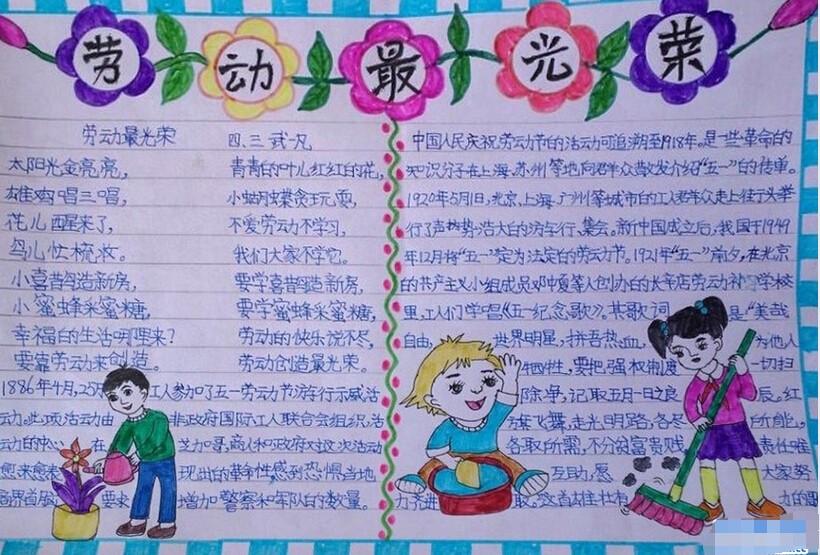 劳动最光荣
劳动最光荣 四、三 武一凡
太阳光金亮亮，
雄鸡唱三唱，
花儿醒来了，
鸟儿忙梳妆。
小喜鹊造新房，
小蜜蜂采蜜糖，
幸福的生活哪里来？
要靠劳动来创造。
青青的叶儿红红的花，
小蝴蝶贪玩耍，
不爱劳动不学习，
我们大家不学它。
要学喜鹊造新房，
要学蜜蜂采蜜糖，
劳动的快乐说不尽，
劳动创造最光荣。
1886年4月，25万 工人参加了五一劳动节游行示威活
动。此项活动由 非政府国际工人联合会组织，活
动的中心 在 芝加哥，商人和政府对这次活动
愈来愈表 现出的革命性感到恐惧，当地
商界首脑 要求 增加警察和军队的数量。
中国人民庆祝劳动节的活动可追溯至1918年。是一些革命的
知识分子在上海、苏州等地向群众散发介绍“五一”的传单。
1920年5月1日，北京、上海、广州等城市的工人群众走上街头举
行了声势浩大的游行、集会。新中国成立后，我国于1949
年12月将“五一”定为法定的劳动节。1921年“五一”前夕，在北京
的共产主义小组成员邓中夏等人创办的长辛店劳动补习学校
里，工人们学唱《五一纪念歌》。其歌词 是“美哉
自由， 世界明星，拼吾热血， 为他人
牺牲，要把强权制度 一切扫
除净，记取五月一日之良 辰。红
旗飞舞，走光明路，各尽 所能，
各取所需，不分贫富贵贱 责任唯
互助，愿 大家努
力齐进 取。这首雄壮有 力的歌